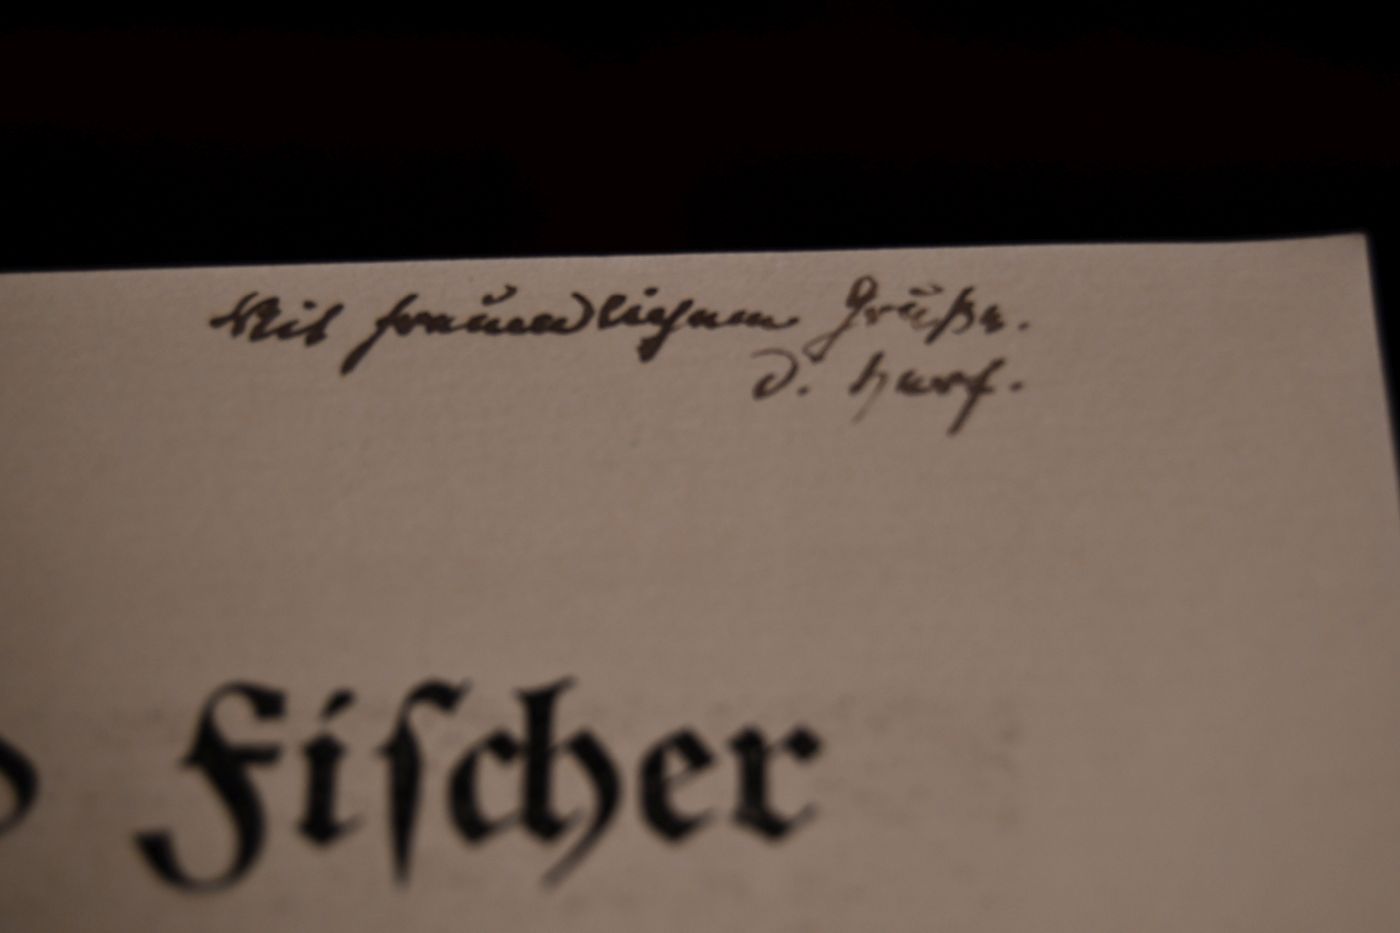 Mit freundlichem Gruße.
d. Verf.
Fiſcher